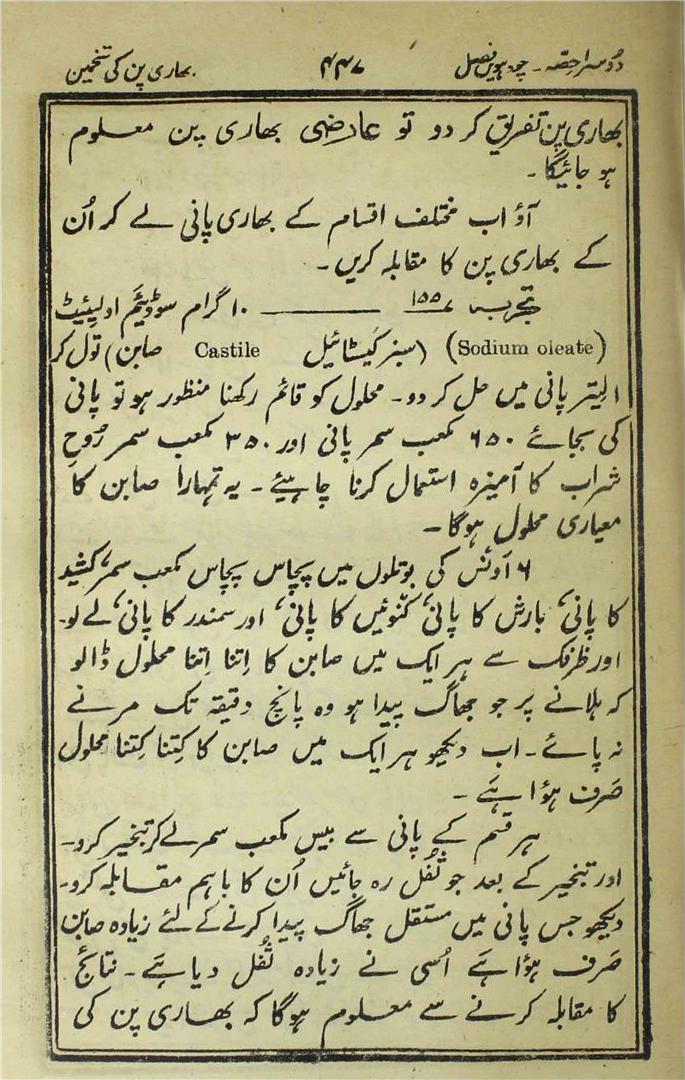 دُوسرا حِصّہ۔ چودہویں فصل ۴۴۷ بھاری پن کی تخمین
بھاری پن تفریق کر دو تو عارضی بھاری پن معلوم
ہو جائیگا۔
آؤ اب مختلف اقسام کے بھاری پانی لے کر اُن
کے بھاری پن کا مقابلہ کریں۔
تجربہ ۱۵۵ ــــــ ۱۰ گرام سوڈیئم اولیئیٹ
(Sodium oleate) (سبز کیسٹائیل Castile صابن) تول کر
۱ لیتر پانی میں حل کر دو۔ محلول کو قائم رکھنا منظور ہو تو پانی
کی بجائے ۶۵۰ مکعب سمر پانی اور ۳۵۰ مکعب سمر رُوحِ
شراب کا آمیزہ استعمال کرنا چاہیئے۔ یہ تمہارا صابن کا
معیاری محلول ہوگا۔
۶ آونس کی بوتلوں میں پچاس پچاس مکعب سمر، کشید
کا پانی، بارش کا پانی، کنوئیں کا پانی، اور سمندر کا پانی، لے لو۔
اور ظرفک سے ہر ایک میں صابن کا اِتنا اِتنا محلول ڈالو
کہ ہلانے پر جو جھاگ پیدا ہو وہ پانچ دقیقہ تک مرنے
نہ پائے۔ اب دیکھو ہر ایک میں صابن کا کِتنا کِتنا محلول
صَرف ہؤا ہَے۔
ہر قسم کے پانی سے بیس مکعب سمر لے کر تبخیر کرو۔
اور تبخیر کے بعد جو ثُفل رہ جائیں اُن کا باہم مقابلہ کرو۔
دیکھو جس پانی میں مستقل جھاگ پیدا کرنے کے لئے زیادہ صابن
صَرف ہؤا ہَے اُسی نے زیادہ ثُفل دیا ہَے۔ نتائج
کا مقابلہ کرنے سے معلوم ہوگا کہ بھاری پن کی